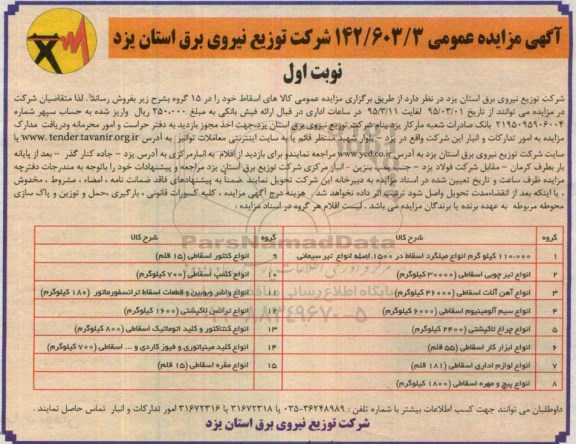 آگهی مزایده عمومی ۱۴۲/۶۰۳/۳ شرکت توزیع نیروی برق استان یزد
نوبت اول
شرکت توزیع نیروی برق استان یزد در نظر دارد از طریق برگزاری مزایده عمومی کالا های اسقاط خود را در ۱۵ گروه بشرح زیر بفروش رساند. لذا متقاضیان شرکت
در مزایده می توانند از تاریخ ۹۵/۰۳/۰۱ لغایت ۹۵/۳/۱۱ در ساعات اداری در قبال ارائه فیش بانکی به مبلغ ۲۵۰،۰۰۰ ریال واریز شده به حساب سپهر شماره
بانک صادرات شعبه مارکار یزد بنام شرکت توزیع نیروی برق استان یزد جهت اخذ مجوز بازدید به دفتر حراست و امور محرمانه ودریافت مدارک
مزایده به امور تدارکات و انبار این شرکت واقع در به سایت اینترنتی معاملات توانیر به آدرس www.tender.tavanir.org.ir یا
سایت شرکت توزیع نیروی برق استان یزد به آدرس www.yed.co.ir مراجعه نمایندو برای بازدید از اقلام به انبارمرکزی به آدرس یزد - جاده کنار گذر - بعد از پایانه
بار بطرف کرمان - مقابل شرکت فولاد یزد - انبار مرکزی شرکت توزیع برق استان یزد مراجعه و پیشنهادات خود را باتوجه به مندرجات دفترچه
مزایده ظرف ساعت و تاریخ تعیین شده در اسناد مزایده به دبیرخانه این شرکت تحویل نمایند ضمناً به پیشنهادهای فاقد ضمانت نامه ، امضاء ، مشروط ، مخدوش
، یا اینکه بعد از انقضاءمدت تحویل واصل شود ترتیب اثر داده نخواهد شد. هزینه درج آگهی مزایده ، کلیه کسورات قانونی ، بارگیری ،حمل و توزین و پاک سازی
محوطه مربوطه به عهده برنده یا برندگان مزایده می باشد . لیست اقلام هر گروه در اسناد مزایده :
گروه شرح کالا گروه شرح کالا
۱ ۱۱۰،۰۰۰ کیلو گرم انواع میلگرد اسقاط در ۱۵۰۰ اصله انواع تیر سیمانی ۹ انواع کنتور اسقاطی (۱۵ قلم)
۲ انواع تیر چوبی اسقاطی (۳۰۰۰۰ کیلوگرم) ۱۰ انواع کلمپ اسقاطی (۷۰۰ کیلوگرم)
۳ انواع آهن آلات اسقاطی (۴۶۰۰۰ کیلوگرم) ۱۱ انواع واشر وبوبین و قطعات اسقاط ترانسفورماتور (۱۸۰ کیلوگرم)
۴ انواع سیم آلومینیوم اسقاطی (۶۰۰۰ کیلوگرم) ۱۲ انواع ترانس لاکپشتی (۱۶۰۰ کیلوگرم)
۵ انواع چراغ لاکپشتی (۲۴۰۰ کیلوگرم) ۱۳ انواع کنتاکتور و کلید اتوماتیک اسقاطی (۸۰۰ کیلوگرم)
۶ انواع ابزار کار اسقاطی (۵۵ قلم) ۱۴ انواع کلید مینیاتوری و فیوز کاردی و ... اسقاطی (۷۰۰ کیلوگرم)
۷ انواع لوازم اداری اسقاطی (۱۸۱ قلم) ۱۵ انواع مقره اسقاطی (۱۵ قلم)
۸ انواع پیچ و مهره اسقاطی (۱۸۰۰ کیلوگرم)
داوطلبان می توانند جهت کسب اطلاعات بیشتر با شماره تلفن : ۳۶۲۴۸۹۸۹-۰۳۵ یا ۳۱۶۷۲۳۱۸ یا ۳۱۶۷۲۳۱۶ امور تدارکات و انبار تماس حاصل نمایند .
شرکت توزیع نیروی برق استان یزد
ParsNamadData